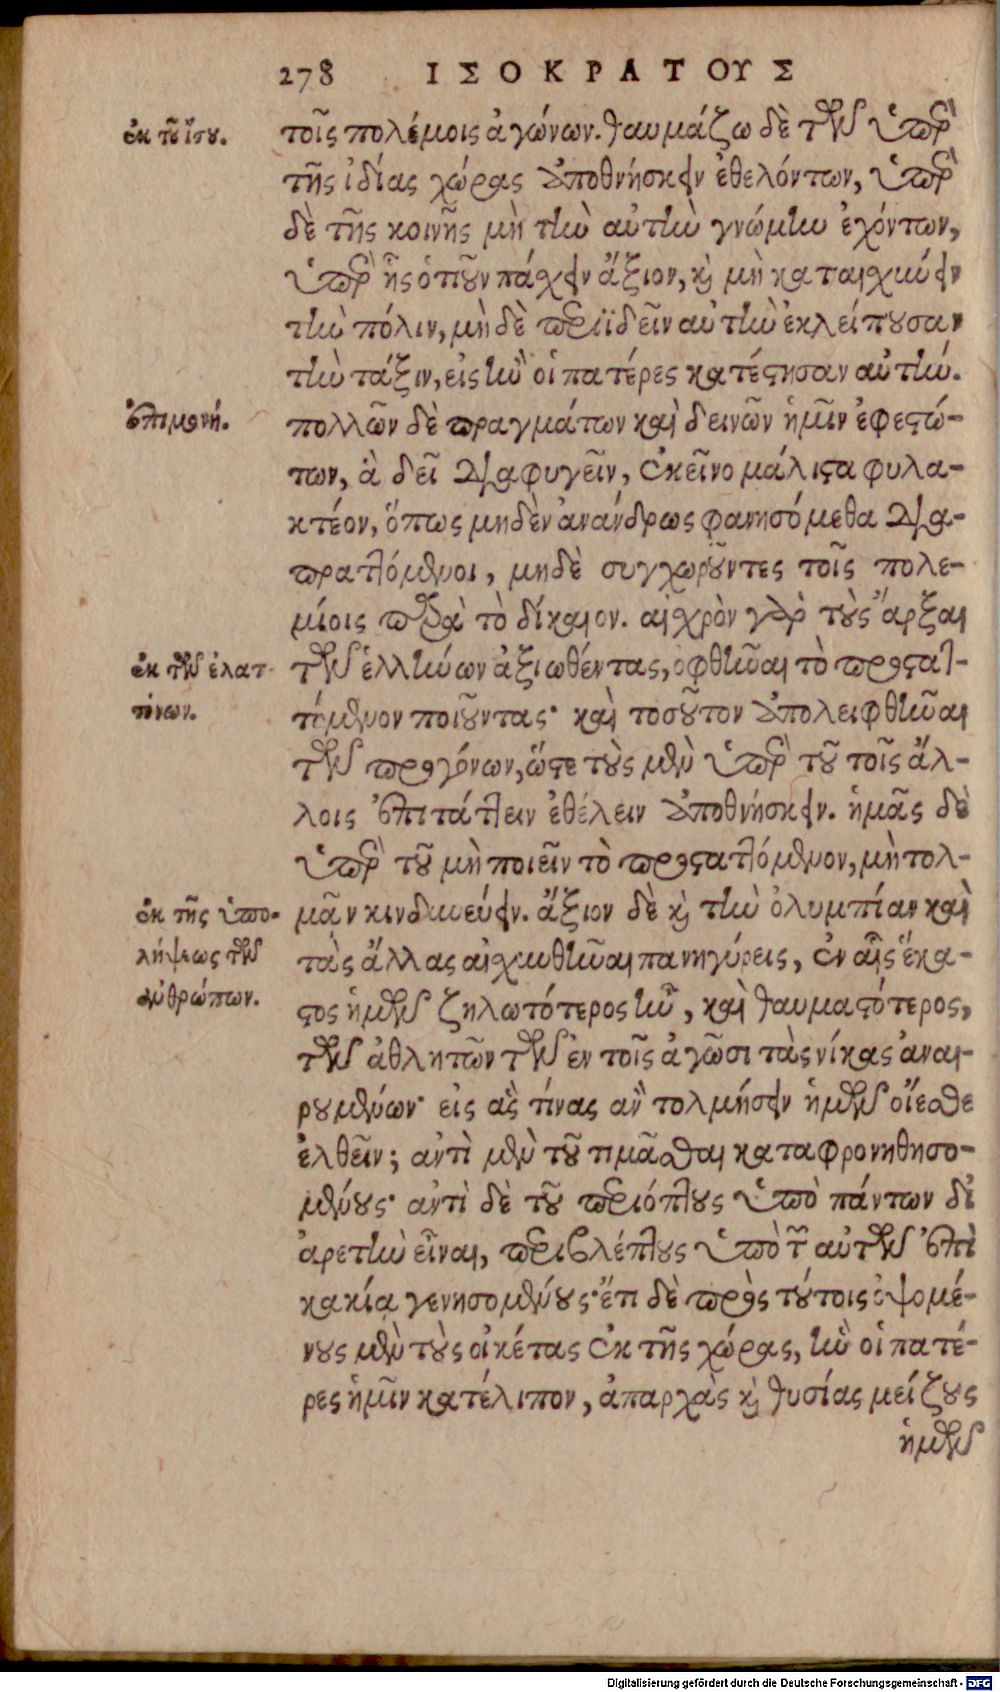 278 ΙΣΟΚΡΑΤΟΥΣ
ἐκ τοῦ ἴσου.
τοῖς πολέμοις ἀγώνων. θαυμάζω δὲ τῶν ὑπὲρ
τῆς ἰδίας χώρας ἀποθνήσκειν ἐθελόντων, ὑπὲρ
δὲ τῆς κοινῆς μὴ τὴν αὐτὴν γνώμην ἐχόντων,
ὑπὲρ ἧς ὁτιοῦν πάχειν ἄξιον, καὶ μὴ καταισχύνειν
τὴν πόλιν, μὴ δὲ περιϊδεῖν αὐτὴν ἐκλείπουσαν
τὴν τάξιν, εἰς ἣν οἱ πατέρες κατέστησαν αὐτήν.
ἐπιμονή.
πολλῶν δὲ πραγμάτων καὶ δεινῶν ἡμῖν ἐφεστώ-
των, ἃ δεῖ διαφυγεῖν, ἐκεῖνο μάλιστα φυλα-
κτέον, ὅπως μηδὲν ἀνάνδρως φανησόμεθα δια-
πραττόμενοι, μηδὲ συγχωροῦντες τοῖς πολε-
μίοις παρὰ τὸ δίκαιον. αἰσχρὸν γὰρ τοὺς ἄρξαι
ἐκ τῶν ἐλατ-
τόνων.
τῶν ἑλλήνων ἀξιωθέντας, ὀφθῆναι τὸ προστατ-
τόμενον ποιοῦντας· καὶ τοσοῦτον ἀπολειφθῆναι
τῶν προγόνων, ὥστε τοὺς μὲν ὑπὲρ τοῦ τοῖς ἄλ-
λοις ἐπιτάττειν ἐθέλειν ἀποθνήσκειν. ἡμᾶς δὲ
ὑπὲρ τοῦ μὴ ποιεῖν τὸ προσταττόμενον, μὴ τολ-
ἐκ τῆς ὑπο-
λήψεως τῶν
ἀνθρώπων.
μᾶν κινδυνεύειν. ἄξιον δὲ καὶ τὴν ὀλυμπίαν καὶ
τὰς ἄλλας αἰσχυνθῆναι πανηγύρεις, ἐν αἷς ἕκα-
στος ἡμῶν ζηλωτότερος ἦν, καὶ θαυμαστότερος,
τῶν ἀθλητῶν τῶν ἐν τοῖς ἀγῶσι τὰς νίκας ἀναι-
ρουμένων· εἰς ἃς τίνας ἂν τολμήσειν ἡμῶν οἴεσθε
ἐλθεῖν; ἀντὶ μὲν τοῦ τιμᾶσθαι καταφρονηθησο-
μένους· ἀντὶ δὲ τοῦ περιόπτους ὑπὸ πάντων δι'
ἀρετὴν εἶναι, περιβλέπτους ὑπὸ τῶν αὐτῶν ἐπὶ
κακίᾳ γενησομένους· ἔτι δὲ πρὸς τούτοις ὀψομέ-
νους μὲν τοὺς οἰκέτας ἐκ τῆς χώρας, ἣν οἱ πατέ-
ρες ἡμῖν κατέλιπον, ἀπαρχὰς καὶ θυσίας μείζους
ἡμῶν
Digitalisierung gefördert durch die Deutsche Forschungsgemeinschaft - DFG